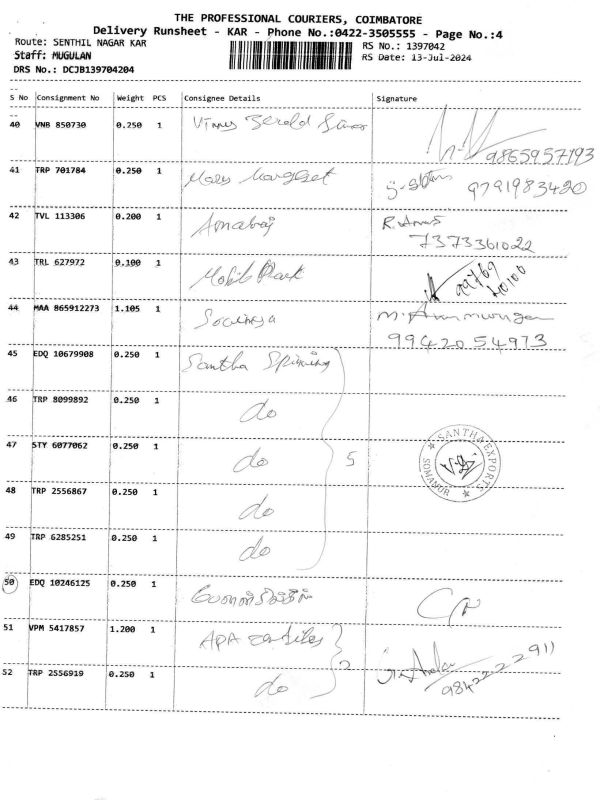 THE PROFESSIONAL COURIERS, COIMBATORE
Delivery Runsheet - KAR - Phone No.:0422-3505555 - Page No.:4
Route: SENTHIL NAGAR KAR RS No.: 1397042
Staff: MUGULAN RS Date: 13-Jul-2024
DRS No.: DCJB139704204
S No Consignment No Weight PCS Consignee Details Signature
40 VNB 850730 0.250 1
9865957193
41 TRP 701784 0.250 1 Mary Margget
9791983420
42 TVL 113306 0.200 1 Amalraj R.
7373361022
43 TRL 627972 0.100 1 Mobile Park 99769
40106
44 MAA 865912273 1.105 1
9942054973
45 EDQ 10679908 0.250 1 Santha Spinning
46 TRP 8099892 0.250 1 do
47 STY 6077062 0.250 1 do 5 SANTHA EXPORTS SOMANUR
48 TRP 2556867 0.250 1 do
49 TRP 6285251 0.250 1 do
50 EDQ 10246125 0.250 1
51 VPM 5417857 1.200 1 APA 2
9842222911
52 TRP 2556919 0.250 1 do